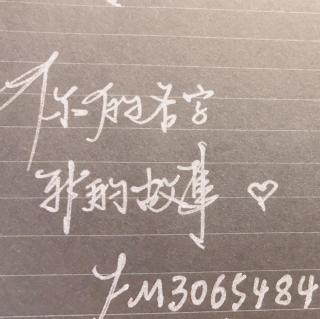 你的名字
我的故事♡
M3065484